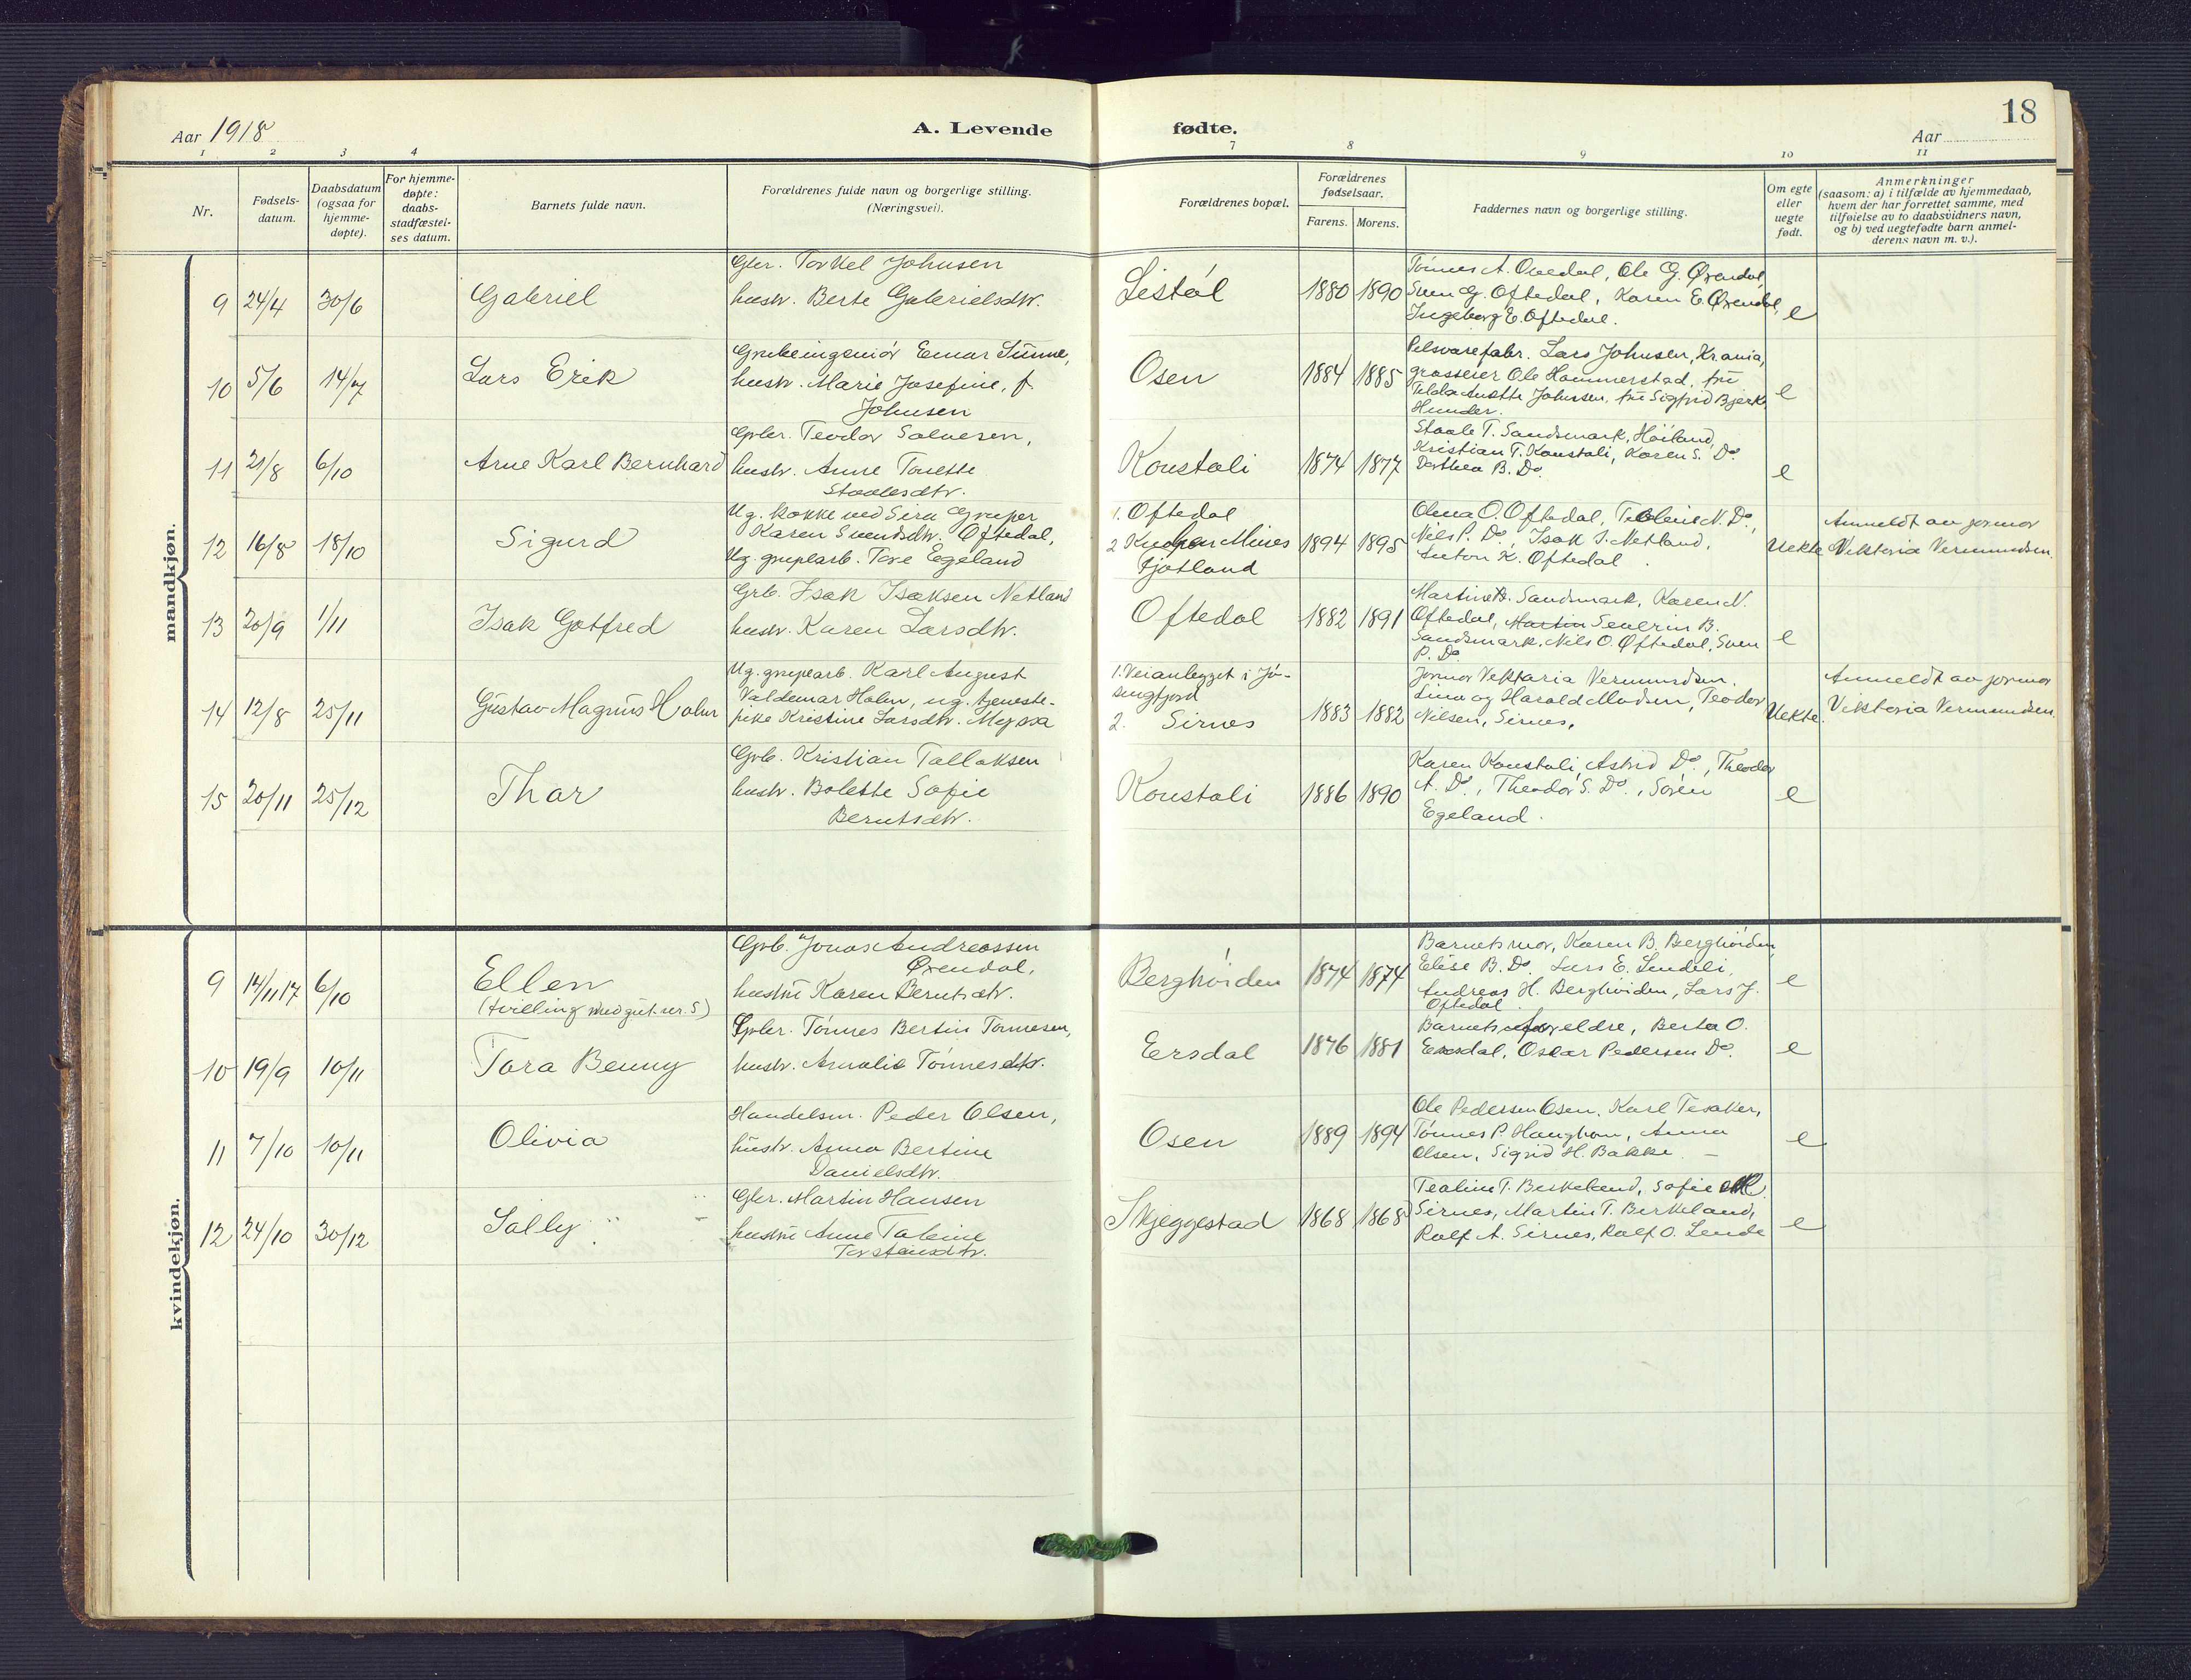 18
Aar 1918
A. Levende fødte.
Aar
1 2 3 4 7 8 9 10 11
Nr.
Fødsels-
datum.
Daabsdatum
(ogsaa for
hjemme-
døpte).
For hjemme-
døpte:
daabs-
stadfæstel-
ses datum.
Barnets fulde navn.
Forældrenes fulde navn og borgerlige stilling.
(Næringsvei).
Forældrenes bopæl.
Forældrenes
fødselsaar.
Farens. Morens.
Faddernes navn og borgerlige stilling.
Om egte
eller
uegte
født.
Anmerkninger
(saasom: a) i tilfælde av hjemmedaab,
hvem der har forrettet samme, med
tilføielse av to daabsvidners navn,
og b) ved uegtefødte barn anmel-
derens navn m. v.).
mandkjøn.
9 24/4 30/6
Gabriel
Gbr. Torkel Johnsen
hustr. Berte Gabrielsdtr.
Listøl
1880 1890
Tønnes A. Ovedal, Ole G. Øxendal,
Sven G. Oftedal, Karen E. Øxendal,
Ingeborg E. Oftedal.
e
10 5/6 14/7
Lars Erik
Grubeingeniør Einar Sunne,
hustr. Marie Josefine, f.
Johnsen
Osen
1884 1885
Pelsvarefabr. Lars Johnsen, Kr.ania,
grosserer Ole Hammerstad, fru
Tilda Anette Johnsen, fru Sigfrid Bjerk,
Hunder.
e
11 21/8 6/10
Arne Karl Bernhard
Gbr. Teodor Salvesen,
hustr. Anne Tonette
Staalesdtr.
Konstali
1874 1877
Staale T. Sandsmark, Høiland,
Kristian T. Konstali, Karen S. Do
Dorthea B. Do
e
12 16/8 18/10
Sigurd
Ug. kokke ved Sira Gruper
Karen Svendsdtr. Oftedal,
Ug. grupearb. Tore Egeland
1. Oftedal
2 Knaben Mines
Fjotland
1894 1895
Olena O. Oftedal, Teoline N. Do,
Nils P. Do, Isak I. Netland,
Anton K. Oftedal
Uekte
Anmeldt av jormor
Viktoria Vermundsen.
13 20/9 1/11
Isak Gotfred
Grb. Isak Isaksen Netland
hustr. Karen Larsdtr.
Oftedal
1882 1891
Martine B. Sandsmark, Karen N.
Oftedal, Martin Severin B.
Sandsmark, Nils O. Oftedal, Sven
P. Do
e
14 12/8 25/11
Gustav Magnus Holm
Ug. grupearb. Karl August
Valdemar Holm, ug. tjeneste-
pike Kristine Larsdtr. Myssa
1. Veianlegget i Jø-
singfjord
2. Sirnes
1883 1882
Jormor Viktaria Vermundsen.
Lina og Harald Madsen, Teodor
Nilsen, Sirnes,
Uekte.
Anmeldt av jormor
Viktoria Vermundsen.
15 20/11 25/12
Thor
Grb. Kristian Tallaksen
hustr. Bolette Sofie
Berntsdtr.
Konstali
1886 1890
Karen Konstali, Astrid Do, Theodor
A. Do, Theodor S. Do, Søren
Egeland.
e
kvindekjøn.
9 14/11 17 6/10
Ellen
(tvilling med gut. nr. 5)
Grb. Jonas Andreassen
Øxendal,
hustru Karen Berntsdtr.
Berghøiden
1874 1874
Barnets mor, Karen B. Berghøiden,
Elise B. Do. Lars E. Lindeli,
Andreas H. Berghøiden, Lars J.
Oftedal
e
10 19/9 10/11
Tora Benny
Gbr. Tønnes Bertin Tønnesen,
hustr. Amalie Tønnesdtr.
Eersdal
1876 1881
Barnets foreldre, Berta O.
Eersdal, Oskar Pedersen Do.
e
11 7/10 10/11
Olivia
Handelsm. Peder Olsen,
hustr. Anna Bertine
Danielsdtr.
Osen
1889 1894
Ole Pedersen Osen, Karl Tesaker,
Tønnes P. Haughom, Anna
Olsen, Sigrid H. Bakke.
e
12 24/10 30/12
Sally
Gbr. Martin Hansen
hustru Anne Taleine
Torstensdtr.
Skjeggestad
1868 1868
Teoline T. Birkeland, Sofie
Sirnes, Martin T. Birkeland,
Rolf A. Sirnes, Rolf O. Lende
e